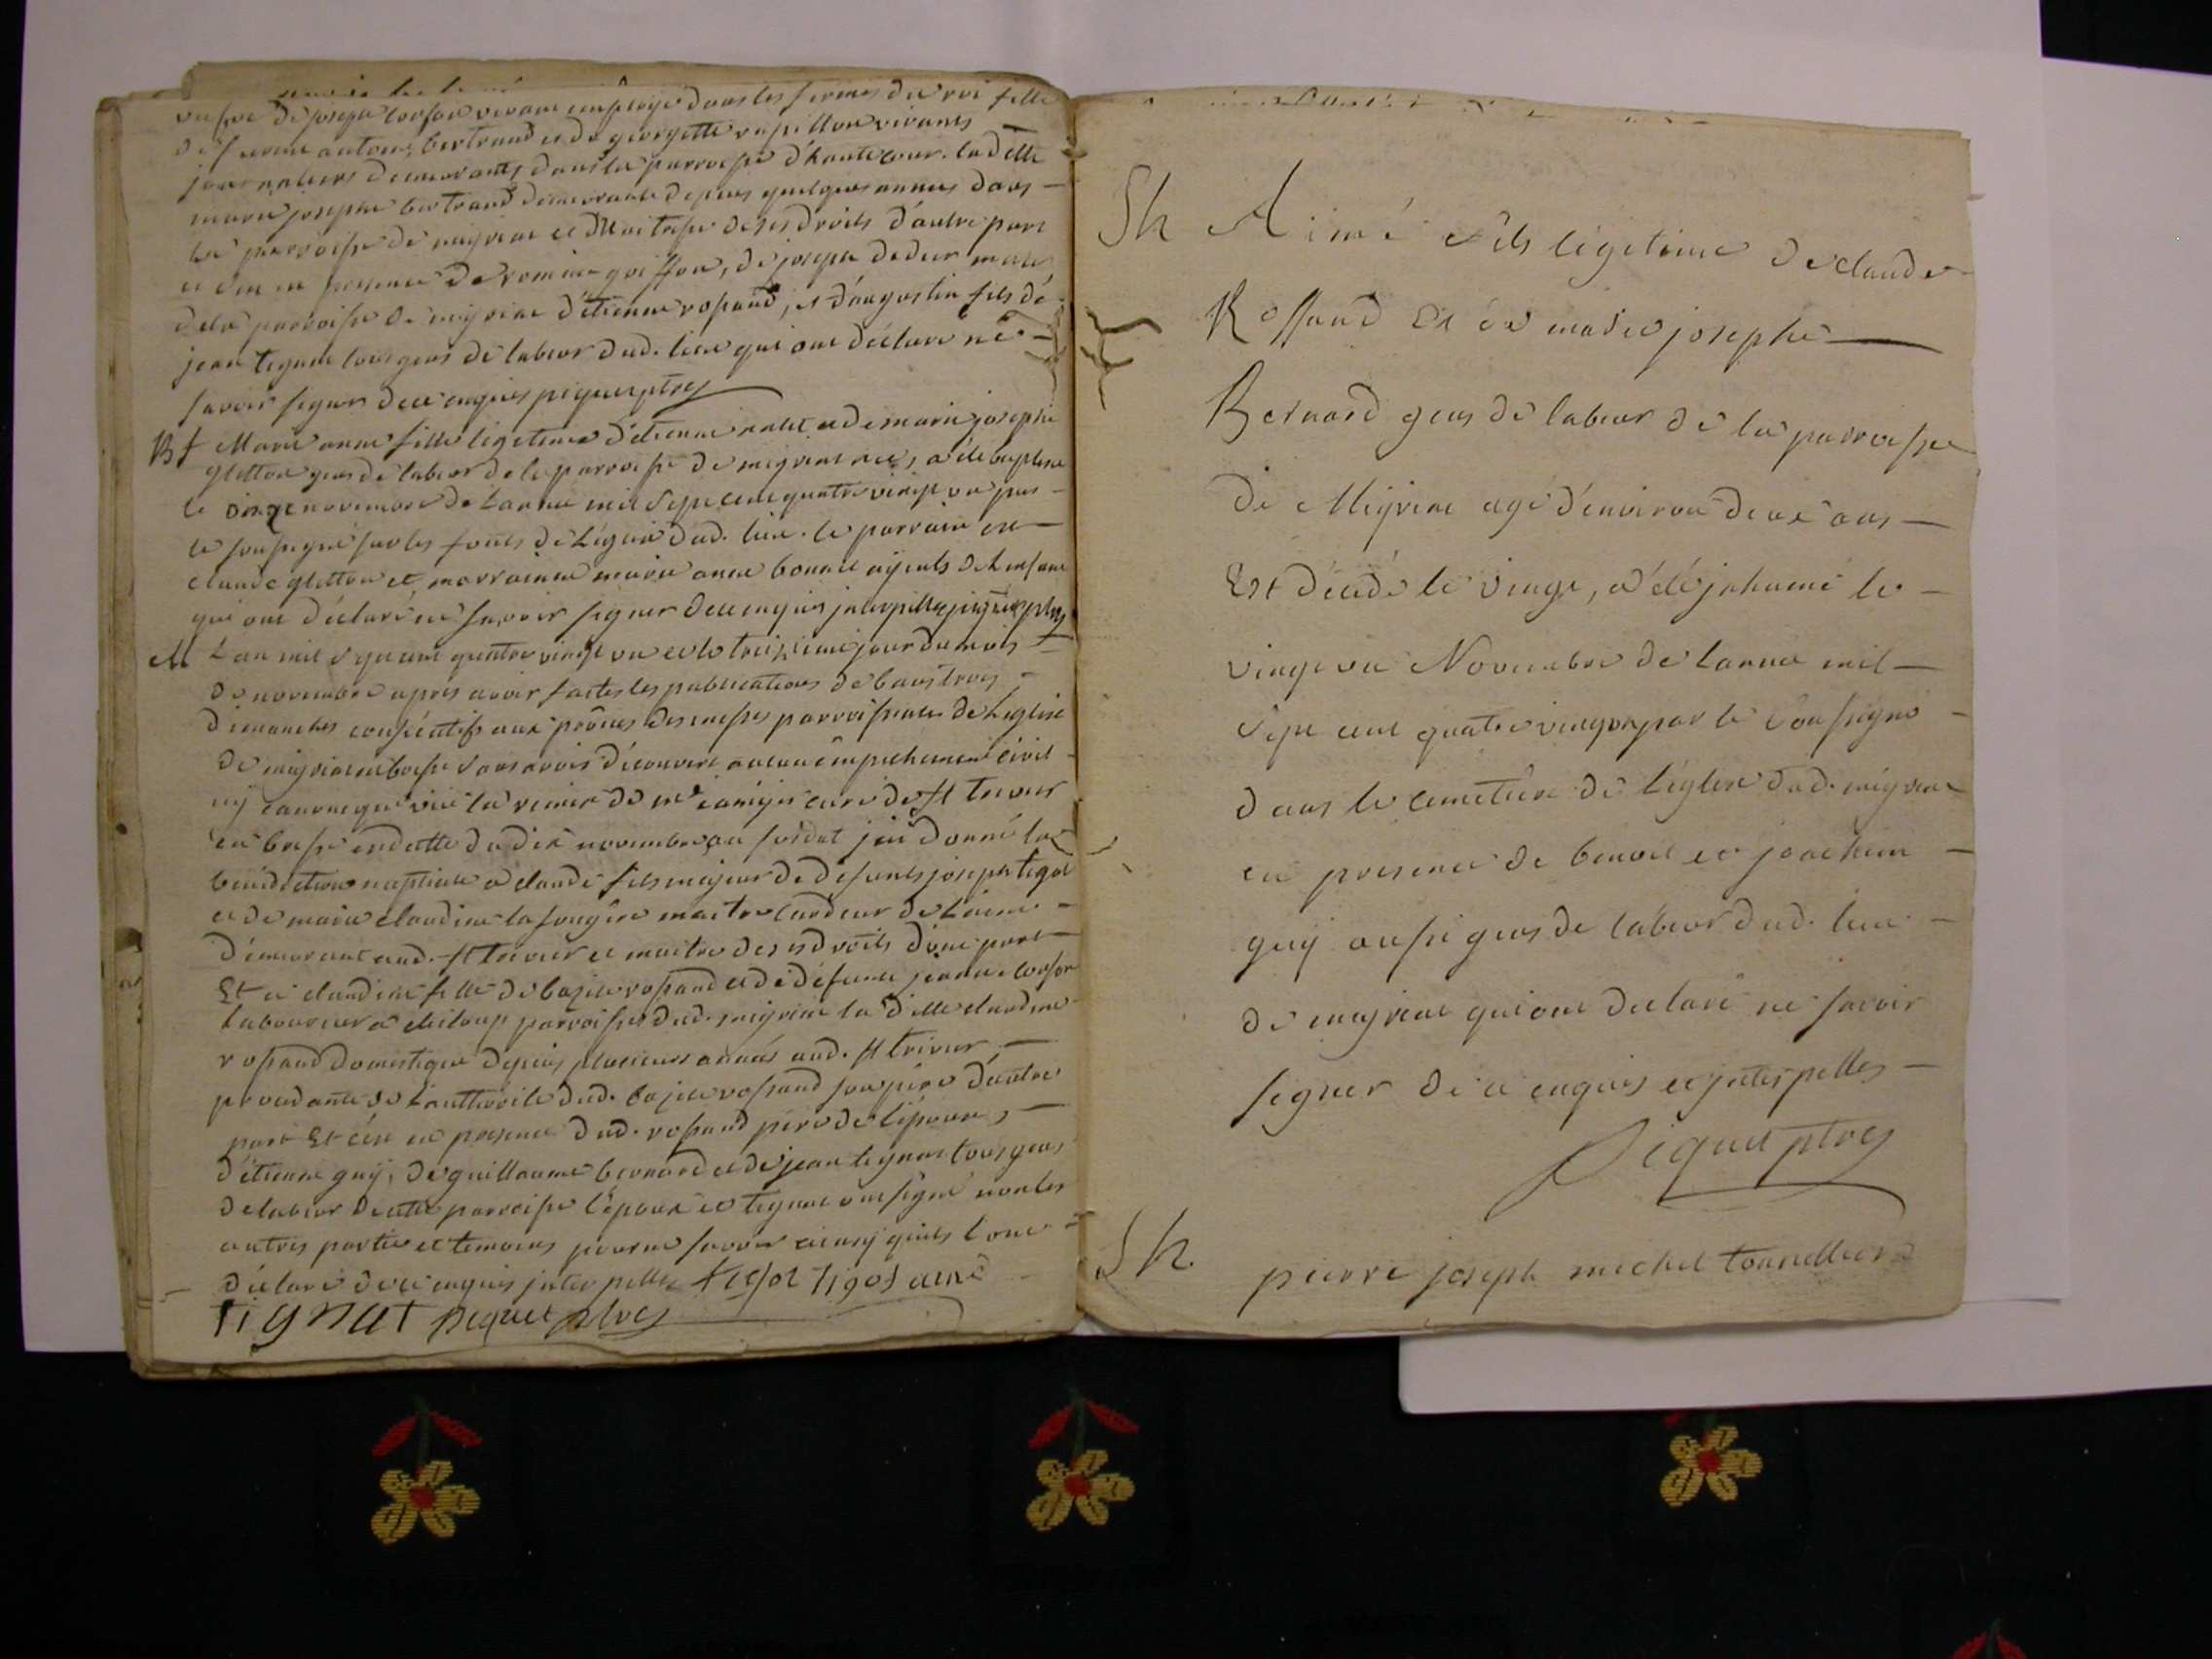 de joseph vivant employé dans les fermes du roi fille
antoine bertrand et de georgette papillon vivants
journaliers demeurants dans la parroisse d'hautecour. ladette
marie josephe bertrand demeurante depuis quelques années dans —
la parroisse de meyriat et Maitresse de ses droits d'autre part
et ce en presence de romain goiffon, de joseph
dela parroisse de meyriat d'étienne rossand, et d'augustin fils de
jean tignat tous gens de labeur dud. lieu qui ont déclaré ne —
savoir signer de ce enquis piquet ptre
Bt Marie anne fille légitime d'étienne et de marie josephe
gletton gens de labeur de la parroisse de meyriat née, a été baptisée
le onze novembre de l'année mil sept cent quatre vingt un par —
le soussigné sur les fonts de l'église dud. lieu. le parrain est —
claude gletton et marraine marie anne ayeuls de l'enfant
qui ont déclaré ne savoir signer de ce enquis interpellés piquet ptre
M L'an mil sept cent quatre vingt un et le treizieme jour du mois —
de novembre apres avoir faites les publications de bans trois —
dimanches consécutifs aux prônes des messes parroissiales de l'église
de meyriat en bresse sans avoir découvert aucun empechement civil —
ny canonique vue la remise de mr curé de st trivier
en bresse en datte du dix novembre j'ai donné la
bénédiction nuptiale a claude fils majeur de defunts joseph tigot
et de marie claudine lafougère maitre cardeur de laine —
démeurant aud. st trivier et maitre de ses droits d'une part —
Et a claudine fille de bazile rossand et de défunte jeanne
laboureur a parroisse dud. meyriat la d'elle claudine
rossand domestique depuis plusieurs années aud. st trivier —
procedante de l'authorité dud. bazile rossand son père d'autre
part Et ce en presence dud. rossand père de l'épouse, —
d'étienne guy, de guillaume bernard et de jean tignat tous gens
de labeur de cette parroisse l'époux et tignat ont signé non les
autres parties et temoins pour ne savoir ainsy qu'ils l'ont —
déclaré de ce enquis interpellés tigot tigot ainé
tignat piquet ptre
Sh Aimé fils légitime de claude
Rossand Et de marie josephe —
Bernard gens de labeur de la parroisse
de Meyriat agé d'environ deux ans —
Est décedé le vingt, a été inhumé le —
vingt un Novembre de l'année mil —
sept cent quatre vingt un par le soussigné —
dans le cemetière de l'église dud. meyriat
en presence de benoit et joachim —
guy aussi gens de labeur dud. lieu —
de meyriat qui ont declaré ne savoir
signer de ce enquis et interpellés —
Piquet ptre
Sh. pierre joseph michel